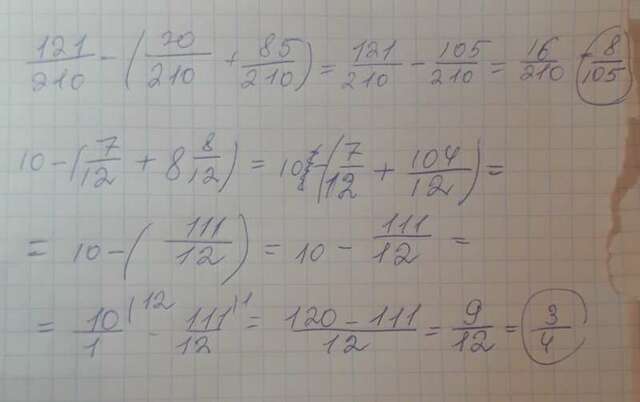 121/210 - (20/210 + 85/210) = 121/210 - 105/210 = 16/210 = 8/105
10 - (7/12 + 8 8/12) = 10 - (7/12 + 104/12) =
= 10 - (111/12) = 10 - 111/12 =
= 10/1 |12 - 111/12 |1 = 120 - 111/12 = 9/12 = 3/4